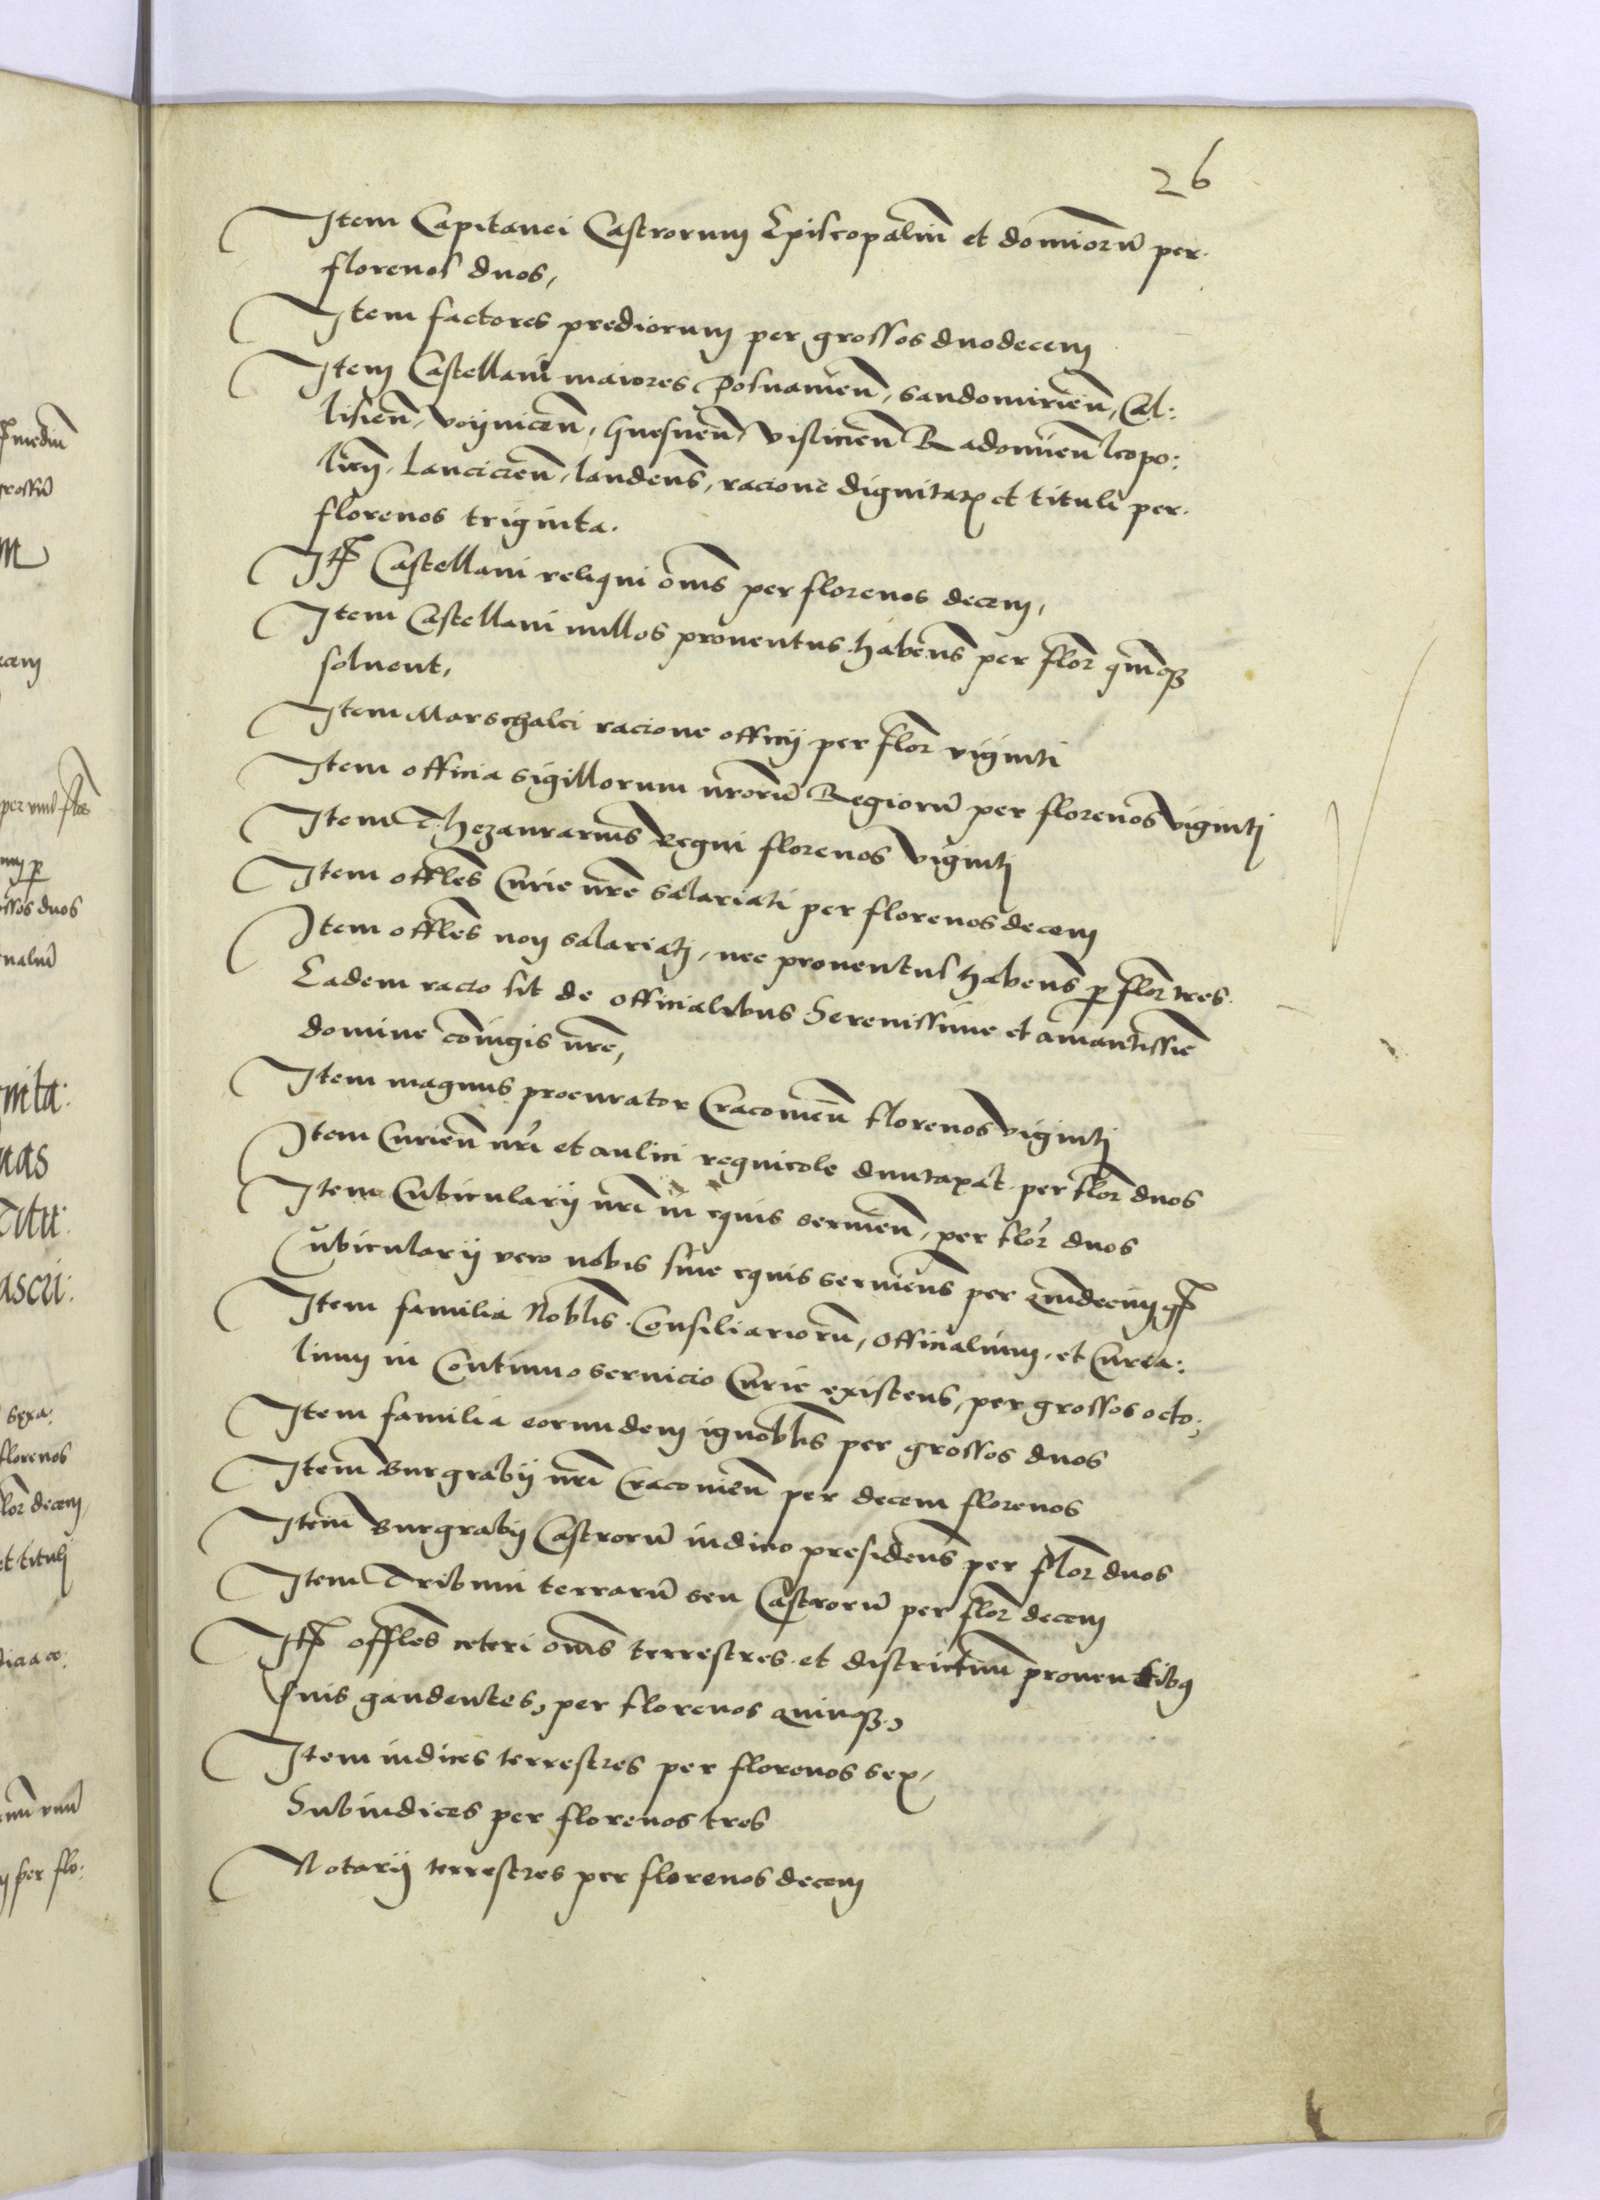 26
Item Capitanei Castrorum Episcopaliũ et domiorũ per
florenos duos,
Item factores prediorum per grossos duodecem
Item Castellani maiores Posnanień, Sandomirień, Cal:
lisień, Voijniceń, Gnesneń, Visliceń Radomień Leopo:
Lancicień, landenś, racione dignitatꝫ et tituli per
florenos triginta.
Itꝫ Castellani reliqui om̃s per florenos decem,
Item Castellani nullos prouentus habenẽs per flor̃ quinqꝫ
soluent,
Item Marschalci racione officij per flor̃ viginti
Item officia sigillorum nrorũ Regiorũ per florenos viginti
Item Thezaurarius Regni florenos viginti
Item offles Curie nr̃e salariati per florenos decem
Item offles non salariati, nec prouentus habenẽs ꝑ flor̃ tres
Eadem racio sit de officialibus Serenissime et amantissie
domine coniugis nr̃e,
Item magnus procurator Cracouień florenos viginti
Item Curień nr̃i et aulici regnicole duntaxat per flor̃ duos
Item Cubicularij nr̃i in equis seruień, per flor̃ duos
Cubicularij vero nobis sine equis seruienẽs per quindecim gꝫ
Item familia Nobl̃is Consiliariorũ, Officialium, et Curia:
lium in Continuo seruicio Curie existens, per grossos octo;
Item familia eorundem ignobl̃is per grossos duos
Item Burgrabij nr̃i Cracouień per decem florenos
Item Burgrabij Castrorũ iudicio presidenẽs per flor̃ duos
Item Tribuni terrarũ seu Castrorũ per flor̃ decem
Itꝫ offles ceteri om̃s terrestres et districtuũ prouentibꝫ
suis gaudentes, per florenos quinqꝫ,
Item iudices terrestres per florenos sex,
Subiudices per florenos tres
Notarij terrestres per florenos decem